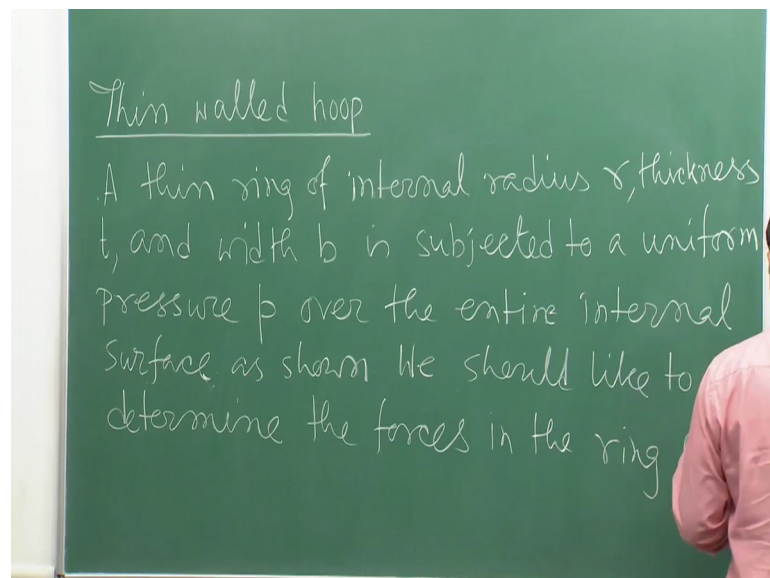 Thin walled hoop
A thin ring of internal radius r, thickness
t, and width b is subjected to a uniform
pressure p over the entire internal
surface as shown We should like to
determine the forces in the ring